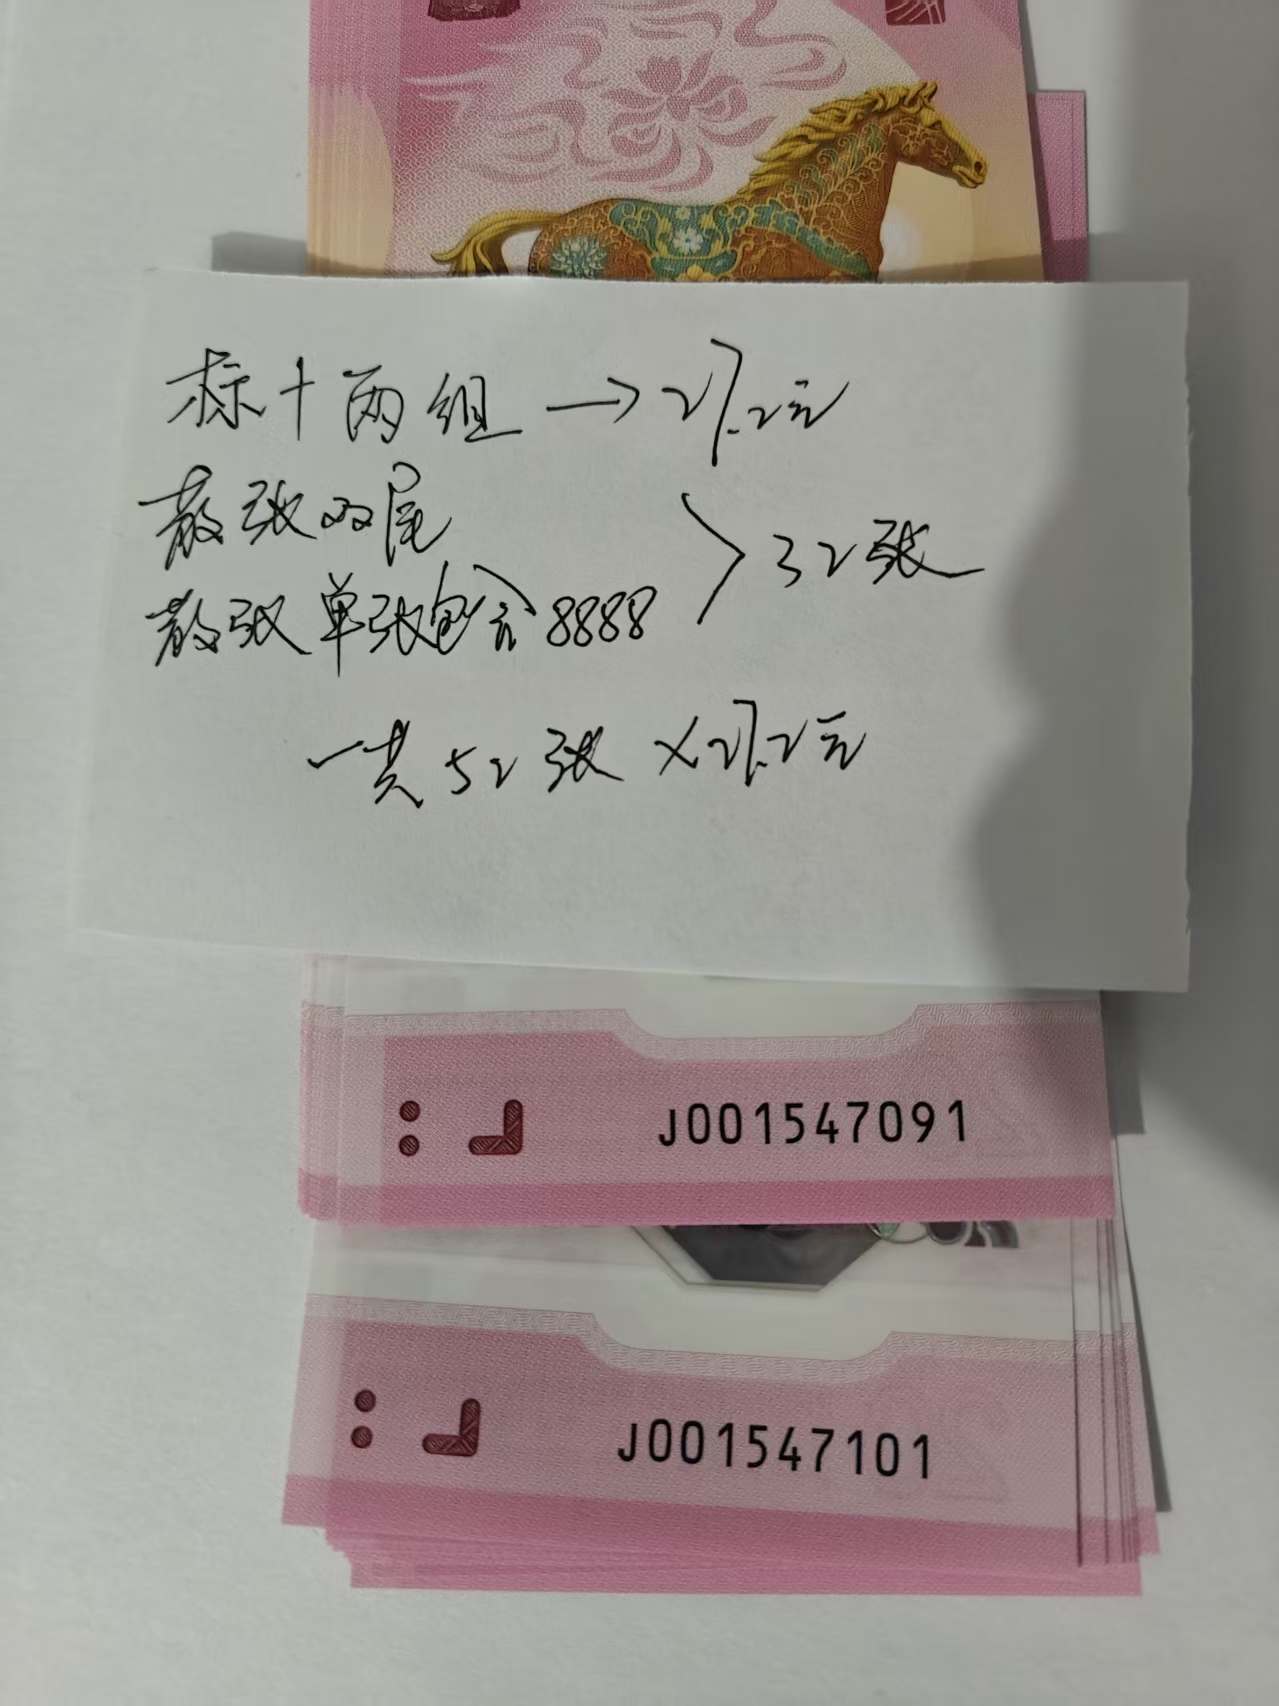 标十两组 → 27.2元
散张双尾
散张单张包含8888 > 32张
一共52张 × 27.2元
J001547091
J001547101